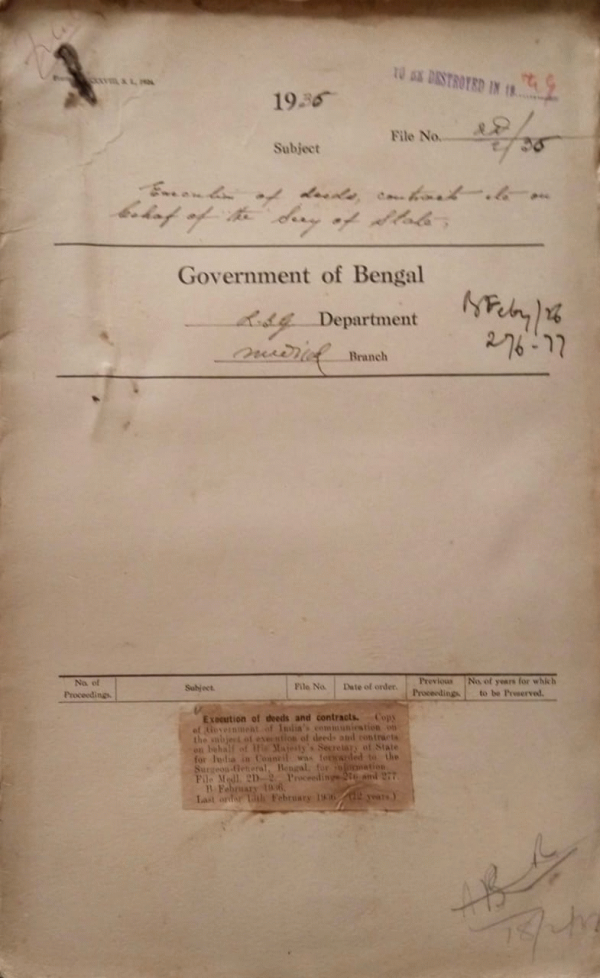 TO BE DESTROYED IN 19
1936
File No. 2D/2/36
Subject
Execution of deeds, contracts etc on
behalf of the Secy of State.
Government of Bengal
L.S.G Department
Medical Branch
B Feby/36
276-77
No. of Proceedings. Subject. File No. Date of order. Previous Proceedings. No. of years for which to be Preserved.
Execution of deeds and contracts.—Copy
of Government of India's communication on
the subject of execution of deeds and contracts
on behalf of His Majesty's Secretary of State
for India in Council was forwarded to the
Surgeon-General, Bengal, for information.
File Medl. 2D—2. Proceedings 276 and 277
B February 1936.
Last order 13th February 1936. (12 years.)